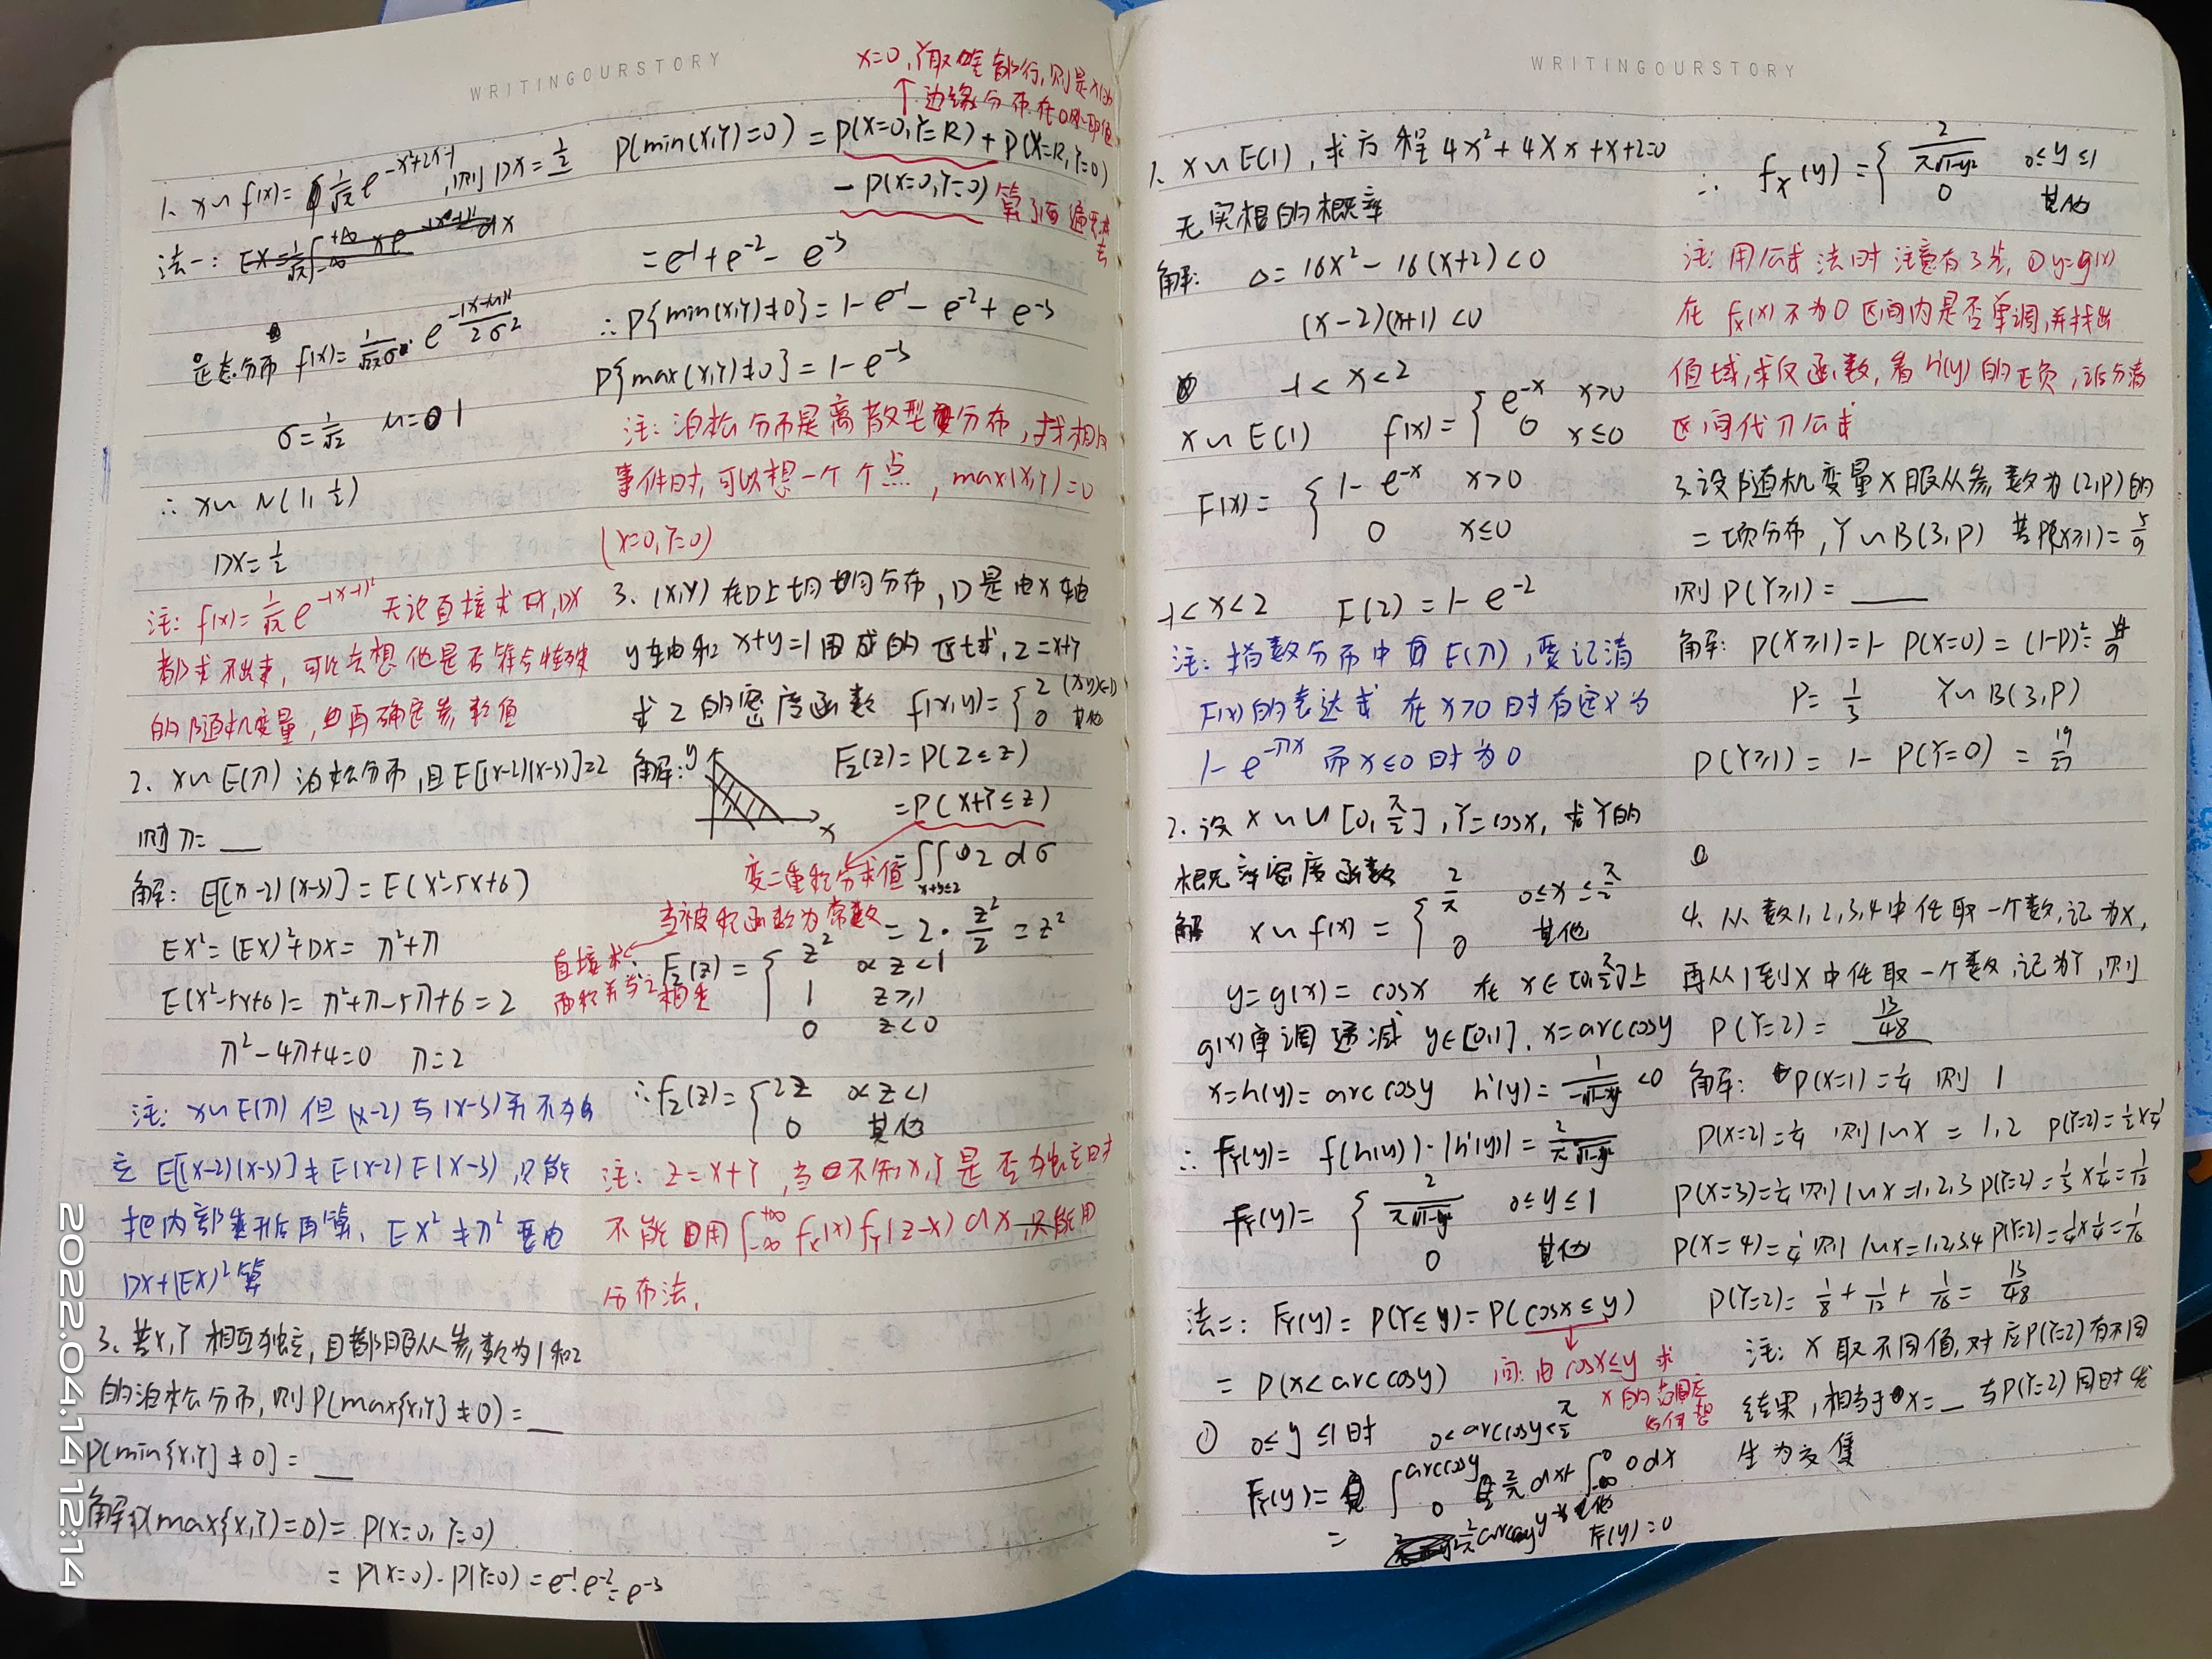 WRITINGOURSTORY
1、X~f(x)=1/√π e^(-x²+2x-1),则DX=1/2
法一:
正态分布 f(x)=1/(√2π σ) · e^(-(x-μ)²/2σ²)
σ=1/√2 μ=1
∴ X~N(1,1/2)
DX=1/2
注: f(x)=1/√π e^(-(x-1)²) 无论直接求EX,DX
都求不出来,可以去想他是否符合特殊
的随机变量,再确定参数值
2、X~E(π) 泊松分布,且E[(X-2)(X-3)]=2
则π=__
解: E[(X-2)(X-3)]=E(X²-5X+6)
EX²=(EX)²+DX=π²+π
E(X²-5X+6)=π²+π-5π+6=2
π²-4π+4=0 π=2
注: X~E(π) 但(X-2)与(X-3)并不独
立 E[(X-2)(X-3)]≠E(X-2)E(X-3),只能
把内部乘开后再算、EX²≠π² 要由
DX+(EX)²算
3、若X,Y相互独立,且都服从参数为1和2
的泊松分布,则P(max{X,Y}≠0)=__
P[min{X,Y}≠0]=__
解 P(max{X,Y}=0)=P(X=0,Y=0)
=P(X=0)·P(Y=0)=e⁻¹·e⁻²=e⁻³
X=0,Y取啥都行,则是X的
↑边缘分布在0处取值
P(min(X,Y)=0)=P(X=0,Y=R)+P(X=R,Y=0)
-P(X=0,Y=0) 算了两遍要减去
=e⁻¹+e⁻²-e⁻³
∴P{min(X,Y)≠0}=1-e⁻¹-e⁻²+e⁻³
P{max(X,Y)≠0}=1-e⁻³
注:泊松分布是离散型分布,找相同
事件时,可以想一个个点,max(X,Y)=0
(X=0,Y=0)
3、(X,Y)在D上均匀分布,D是由X轴
y轴和x+y=1围成的区域,Z=X+Y
求Z的密度函数 f(x,y)={2 (x,y)∈D
0 其他
解: y x F_Z(z)=P(Z≤z)
=P(X+Y≤z)
变二重积分求值 =∬_(x+y≤z) 2dσ
当被积函数为常数 =2·z²/2=z²
直接求面积并与之相乘
∴F_Z(z)={z² 0<z<1
1 z≥1
0 z<0
∴f_Z(z)={2z 0<z<1
0 其他
注: Z=X+Y,当不知X,Y是否独立时
不能用∫_-∞^+∞ f_X(x)f_Y(z-x)dx,只能用
分布法,
WRITINGOURSTORY
1、X~E(1),求方程4x²+4Xx+X+2=0
无实根的概率
解: Δ=16X²-16(X+2)<0
(X-2)(X+1)<0
-1<X<2
X~E(1) f(x)={e^-x x>0
0 x≤0
F(x)={1-e^-x x>0
0 x≤0
-1<X<2 F(2)=1-e⁻²
注:指数分布中有E(π),要记清
F(x)的表达式 在x>0时有定义为
1-e^-πx 而x≤0时为0
2、设X~U[0,π/2],Y=cosX,求Y的
概率密度函数
解 X~f(x)={2/π 0≤x≤π/2
0 其他
y=g(x)=cosx 在x∈[0,π/2]上
g(x)单调递减 y∈[0,1].x=arccosy
x=h(y)=arccosy h'(y)=1/(-√1-y²)<0
∴f_Y(y)=f(h(y))·|h'(y)|=2/(π√1-y²)
f_Y(y)={2/(π√1-y²) 0≤y≤1
0 其他
法二: F_Y(y)=P(Y≤y)=P(cosX≤y)
=P(X<arccosy) 问:由cosx≤y求
x的范围应如何想
① 0≤y≤1时 0<arccosy<π/2
F_Y(y)=∫_0^arccosy 2/π dx+∫_-∞^0 0dx
=2/π arccosy 其他 F_Y(y)=0
∴ f_X(y)={2/(π√1-y²) 0≤y≤1
0 其他
注:用公式法时注意有3步,①y=g(x)
在f_X(x)不为0区间内是否单调,并找出
值域,求反函数,看h'(y)的正负,记分清
区间代入公式
3、设随机变量X服从参数为(2,P)的
二项分布,Y~B(3,P) 若P(X≥1)=5/9
则P(Y≥1)=____
解: P(X≥1)=1-P(X=0)=(1-P)²=4/9
P=1/3 Y~B(3,P)
P(Y≥1)=1-P(Y=0)=19/27
4、从数1,2,3,4中任取一个数,记为X,
再从1到X中任取一个数,记为Y,则
P(Y=2)=13/48
解: P(X=1)=1/4 则1
P(X=2)=1/4 则1~X=1,2 P(Y=2)=1/2×1/4
P(X=3)=1/4则1~X=1,2,3 P(Y=2)=1/3×1/4=1/12
P(X=4)=1/4则1~X=1,2,3,4 P(Y=2)=1/4×1/4=1/16
P(Y=2)=1/8+1/12+1/16=13/48
注: X取不同值,对应P(Y=2)有不同
结果,相当于X=_与P(Y=2)同时发
生为交集
2022.04.14 12:14